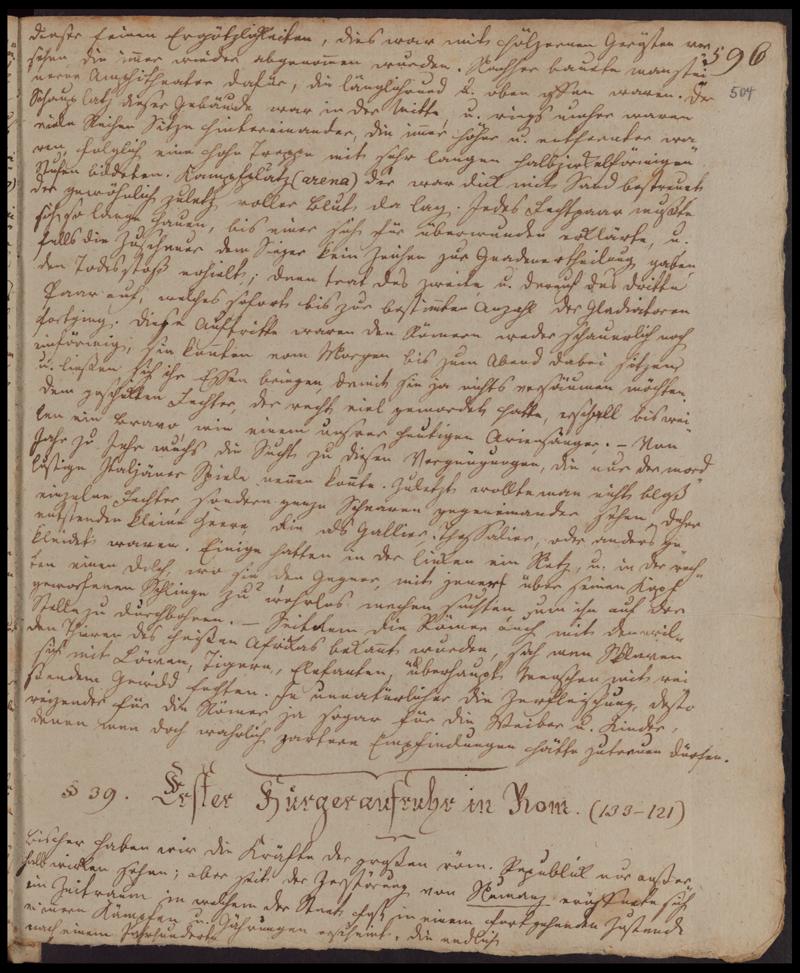 dieser feinen Ergötzlichkeiten, dies war mit hölzernen Gerüsten ver=
596
sehen die immer wieder abgenommen wurden. Nachher bauete man stei
504
nerne Amphitheater dafür, die länglichrund u. oben offen waren. Der
Schauplatz dieser Gebäude war in der Mitte, u. rings umher waren
viele Reihen Sitze hintereinander, die immer höher u. entfernter wa
ren, folglich eine hohe Treppe mit sehr langen halbzirkelförmigen
Stufen bildeten. Kampfplatz (arena) der war dick mit Sand bestreuet
der gewöhnlich zuletzt voller Blut da lag. Jedes Fechtpaar mußte
sich so lange hauen, bis einer sich für überwunden erklärte, u.
falls die Zuschauer dem Sieger kein Zeichen zur Gnadenertheilung gaben
den Todesstoß erhielt; dann trat das zweite u. darauf das dritte
Paar auf, welches sofort bis zur bestimmten Anzahl der Gladiatoren
fortging. Diese Auftritte waren den Römern weder schauerlich noch
einförmig, sie konnten vom Morgen bis zum Abend dabei sitzen,
u. ließen sich ihr Essen bringen, damit sie ja nichts versäumen möchten.
Dem geschickten Fechter, der recht viel gemordet hatte, erscholl biswei
len ein Bravo wie einem unsrer heutigen Ariensänger. – Von
Jahr zu Jahr wuchs die Sucht zu diesen Vergnügungen, die nur der mord=
lustige Italjäner Spiele nennen konnte. Zuletzt wollte man nicht bloß
einzelne Fechter sondern ganze Scharen gegeneinander sehen, daher
entstanden kleine Heere die als Gallier, Thessalier, oder anders ge=
kleidet waren. Einige hatten in der linken ein Netz, u. in der rech=
ten einen Dolch, wo sie den Gegner, mit jener über seinen Kopf
geworfenen Schlinge zu wehrlos machen suchten, um ihn auf der
Stelle zu durchbohren. – Seitdem die Römer auch mit den wil=
den Thieren des heißen Afrikas bekannt wurden, sah man Sklaven
sich mit Löwen, Tigern, Elefanten, überhaupt Menschen mit rei
ßendem Gewild fechten. Je unnatürlicher die Zerfleischung, desto
reizender für die Römer, ja sogar für die Weiber u. Kinder,
denen man doch wahrlich zartere Empfindungen hätte zutrauen dürfen.
§ 39. Erster Bürgeraufruhr in Rom. (133–121)
Bisher haben wir die Kräfte der großen röm. Republik nur außer
halb wirken sehen; aber seit der Zerstörung von Numanz eröffnete sich
ein Zeitraum in welchem der Staat fast in einem fortgehenden Zustande
von innern Kämpfen u. Gährungen erscheint, die endlich
nach einem Jahrhunderte